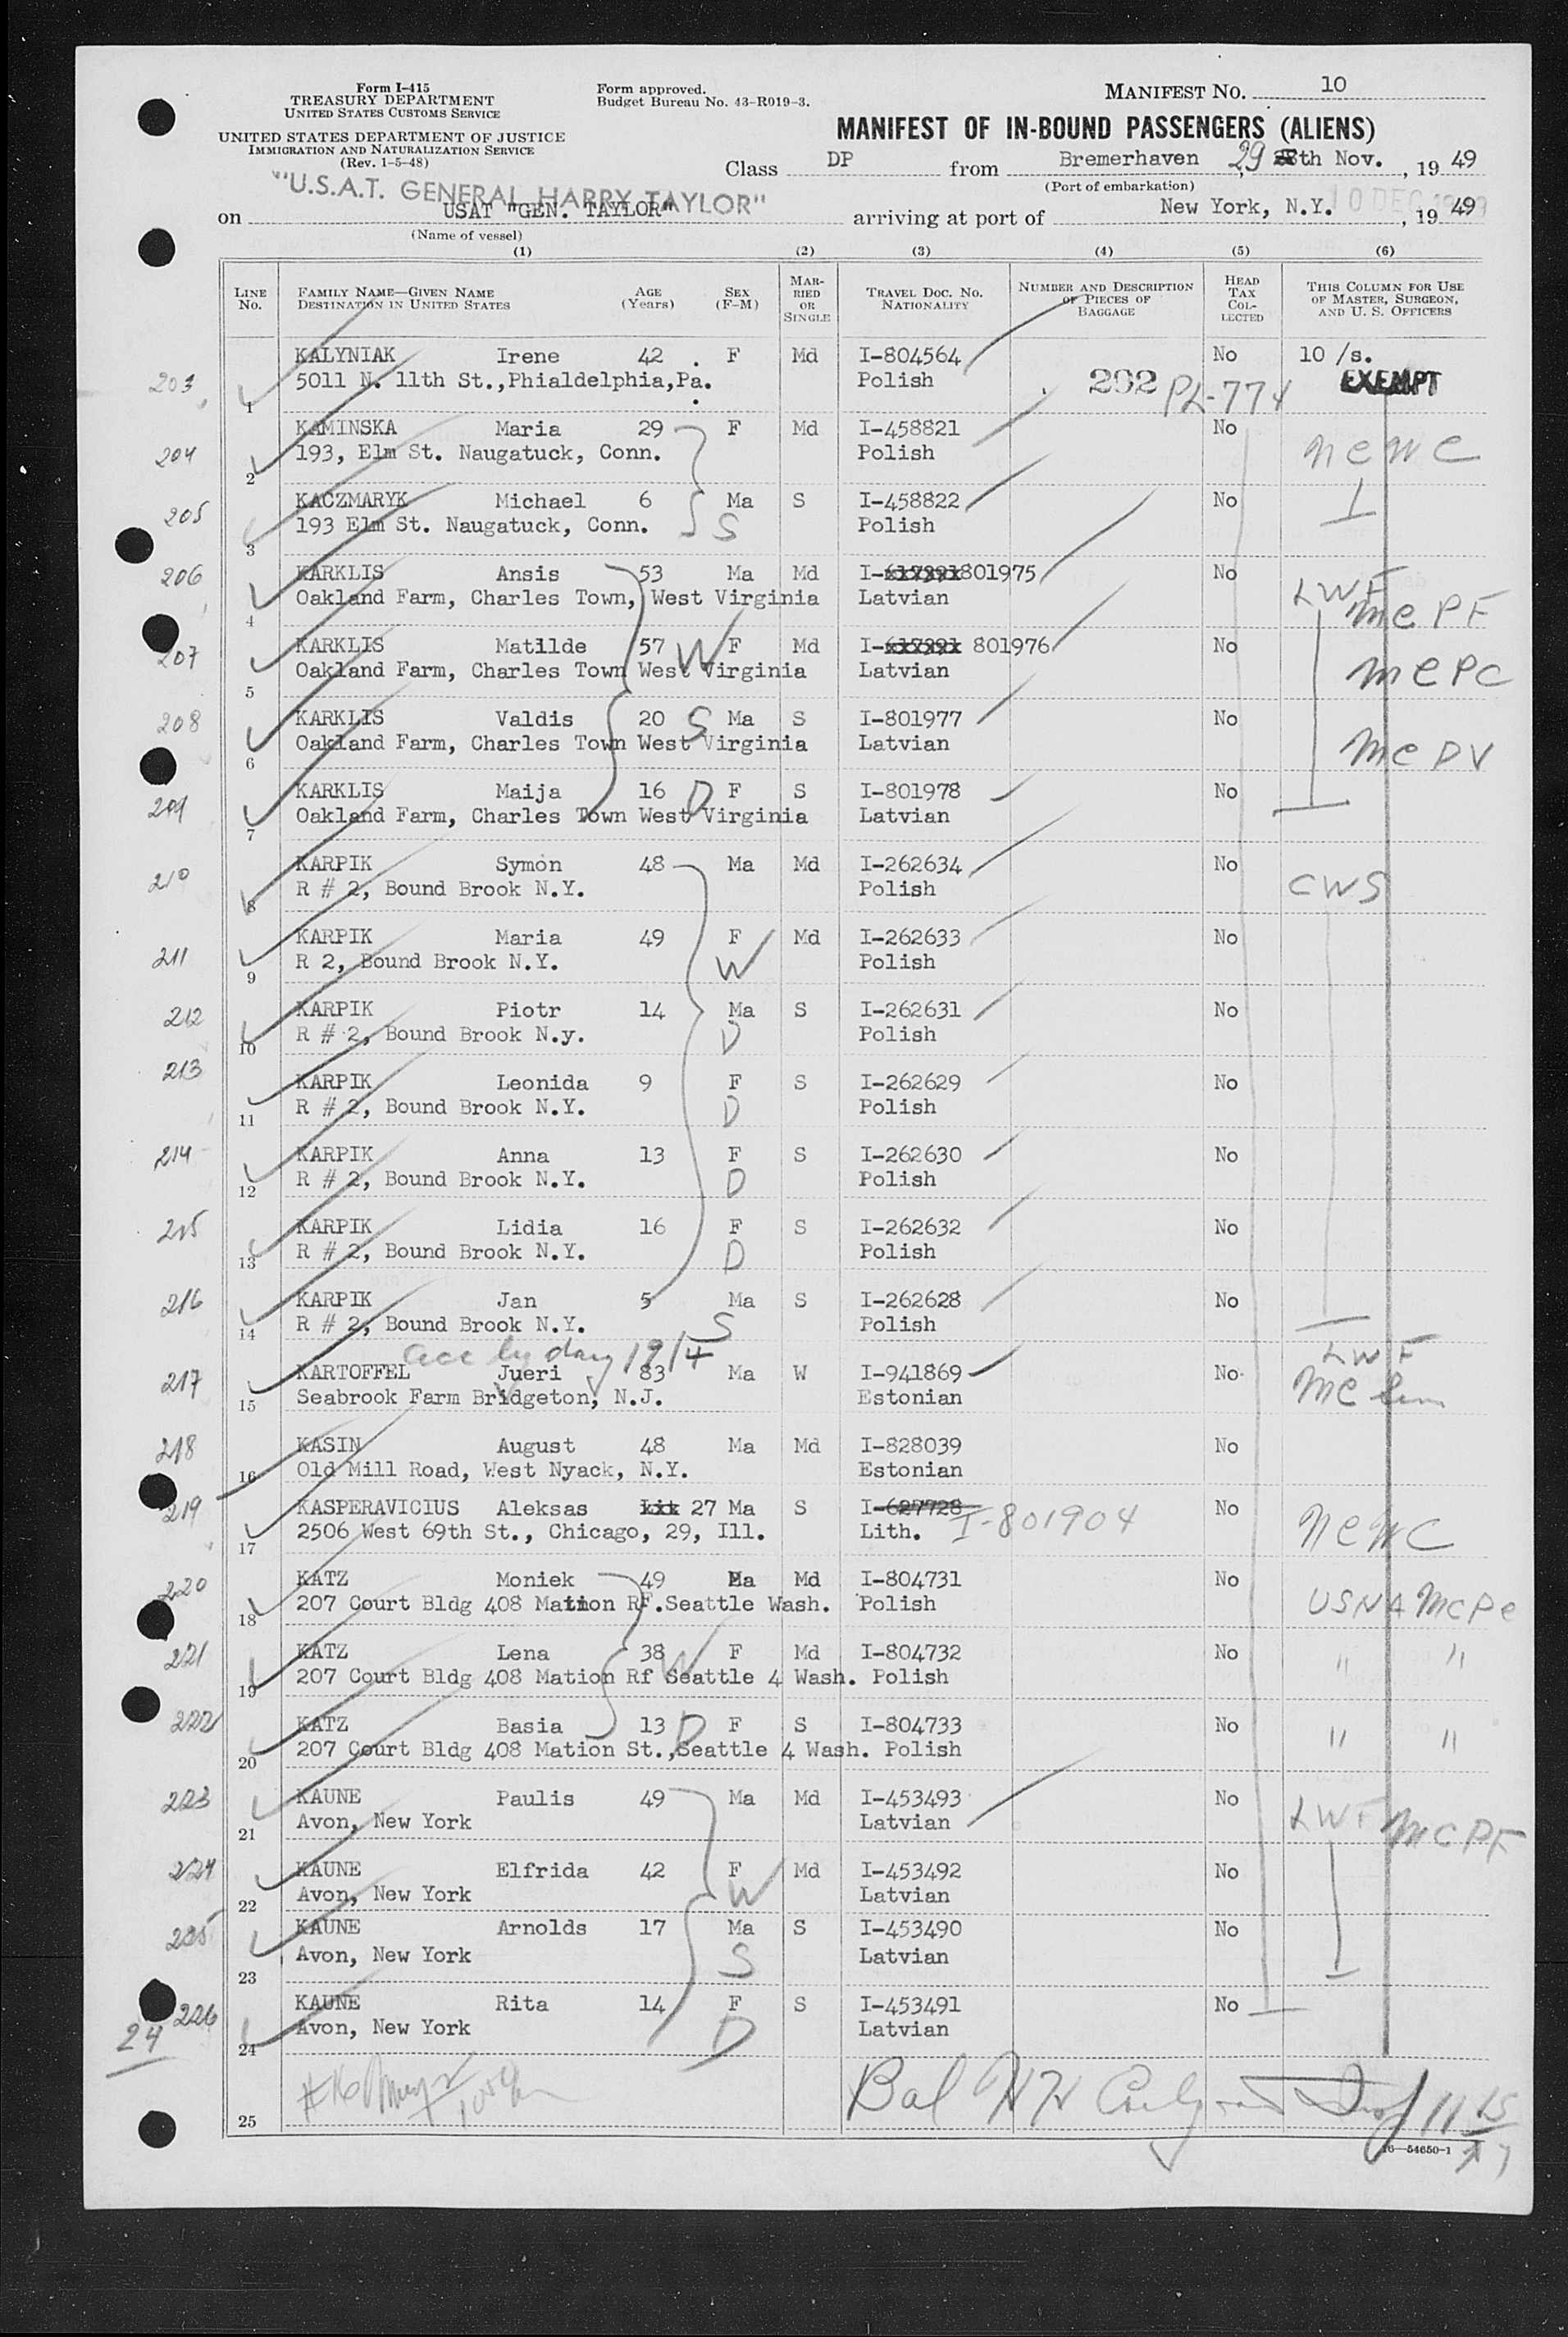 Form I-415
TREASURY DEPARTMENT
UNITED STATES CUSTOMS SERVICE
UNITED STATES DEPARTMENT OF JUSTICE
IMMIGRATION AND NATURALIZATION SERVICE
(Rev. 1-5-48)
Form approved.
Budget Bureau No. 43-R019-3.
MANIFEST NO. 10
MANIFEST OF IN-BOUND PASSENGERS (ALIENS)
Class DP from Bremerhaven, 29 th Nov., 1949
(Port of embarkation)
"U.S.A.T. GENERAL HARRY TAYLOR"
on USAT "GEN. TAYLOR" arriving at port of New York, N.Y. 10 DEC 1949, 1949
(Name of vessel)
(1) (2) (3) (4) (5) (6)
LINE No. FAMILY NAME—GIVEN NAME DESTINATION IN UNITED STATES AGE (Years) SEX (F-M) MARRIED OR SINGLE TRAVEL DOC. NO. NATIONALITY NUMBER AND DESCRIPTION OF PIECES OF BAGGAGE HEAD TAX COLLECTED THIS COLUMN FOR USE OF MASTER, SURGEON, AND U. S. OFFICERS
KALYNIAK Irene 42 F Md I-804564 No 10 /s.
203 1 5011 N. 11th St.,Phialdelphia,Pa. Polish 202 PL-774 EXEMPT
KAMINSKA Maria 29 F Md I-458821 No
204 2 193, Elm St. Naugatuck, Conn. Polish nc WC
KACZMARYK Michael 6 Ma S I-458822 No
205 3 193 Elm St. Naugatuck, Conn. S Polish
206 KARKLIS Ansis 53 Ma Md I-801975 No LWF
4 Oakland Farm, Charles Town, West Virginia Latvian mc PF
207 KARKLIS Matilde 57 W F Md I- 801976 No
5 Oakland Farm, Charles Town West Virginia Latvian mc PC
208 KARKLIS Valdis 20 S Ma S I-801977 No
6 Oakland Farm, Charles Town West Virginia Latvian mc DV
209 KARKLIS Maija 16 D F S I-801978 No
7 Oakland Farm, Charles Town West Virginia Latvian
KARPIK Symon 48 Ma Md I-262634 No
210 8 R # 2, Bound Brook N.Y. Polish CWS
KARPIK Maria 49 F Md I-262633 No
211 9 R 2, Bound Brook N.Y. W Polish
212 KARPIK Piotr 14 Ma S I-262631 No
10 R # 2, Bound Brook N.y. D Polish
213 KARPIK Leonida 9 F S I-262629 No
11 R # 2, Bound Brook N.Y. D Polish
214 KARPIK Anna 13 F S I-262630 No
12 R # 2, Bound Brook N.Y. D Polish
215 KARPIK Lidia 16 F S I-262632 No
13 R # 2, Bound Brook N.Y. D Polish
216 KARPIK Jan 5 Ma S I-262628 No
14 R # 2, Bound Brook N.Y. S Polish
acc by dau 19/4 LWF
217 KARTOFFEL Jueri 83 Ma W I-941869 No
15 Seabrook Farm Bridgeton, N.J. Estonian mc
218 KASIN August 48 Ma Md I-828039 No
16 Old Mill Road, West Nyack, N.Y. Estonian
219 KASPERAVICIUS Aleksas 27 Ma S I-627728 No
17 2506 West 69th St., Chicago, 29, Ill. Lith. I-801904 nc WC
220 KATZ Moniek 49 Ma Md I-804731 No
18 207 Court Bldg 408 Mation RF.Seattle Wash. Polish USNA mc Pc
221 KATZ Lena 38 W F Md I-804732 No
19 207 Court Bldg 408 Mation Rf Seattle 4 Wash. Polish " "
222 KATZ Basia 13 D F S I-804733 No
20 207 Court Bldg 408 Mation St.,Seattle 4 Wash. Polish " "
223 KAUNE Paulis 49 Ma Md I-453493 No
21 Avon, New York Latvian LWF mc PF
224 KAUNE Elfrida 42 F Md I-453492 No
22 Avon, New York W Latvian
225 KAUNE Arnolds 17 Ma S I-453490 No
23 Avon, New York S Latvian
226 KAUNE Rita 14 F S I-453491 No
24 24 Avon, New York D Latvian
25 Bal
16—54650-1